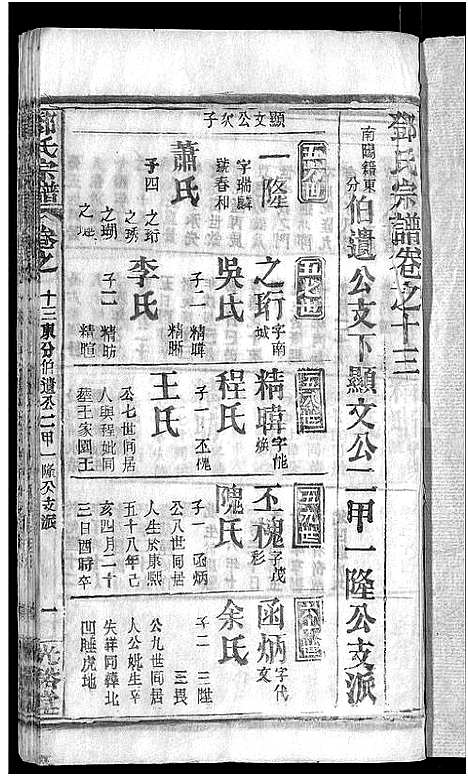 鄧氏宗譜卷之十三
南陽籍東分伯遺公支下顯文公二甲一隆公支派
顯文公次子
五六世
一隆
字瑞麟
號春和
蕭氏
子四
之珩
之琇
之瑚
之
五七世
之珩
字南
城
吳氏
子二
精暐
精晰
李氏
子二
精昉
精暄
五八世
精暐
字能
煥
程氏
子一
丕槐
王氏
公七世同居
人與程妣同
塟王家園王
五九世
丕槐
字茂
彩
隗氏
子一
函炳
公八世同居
人生於康熙
五十八年己
亥四月二十
三日酉時卒
六十世
函炳
字代
文
余氏
子二
三陞
三畏
公九世同居
人公妣生卒
失祥同葬北
凹睡虎地
鄧氏宗譜
卷之
十三東分伯遺公二甲一隆公支派
一
光裕堂